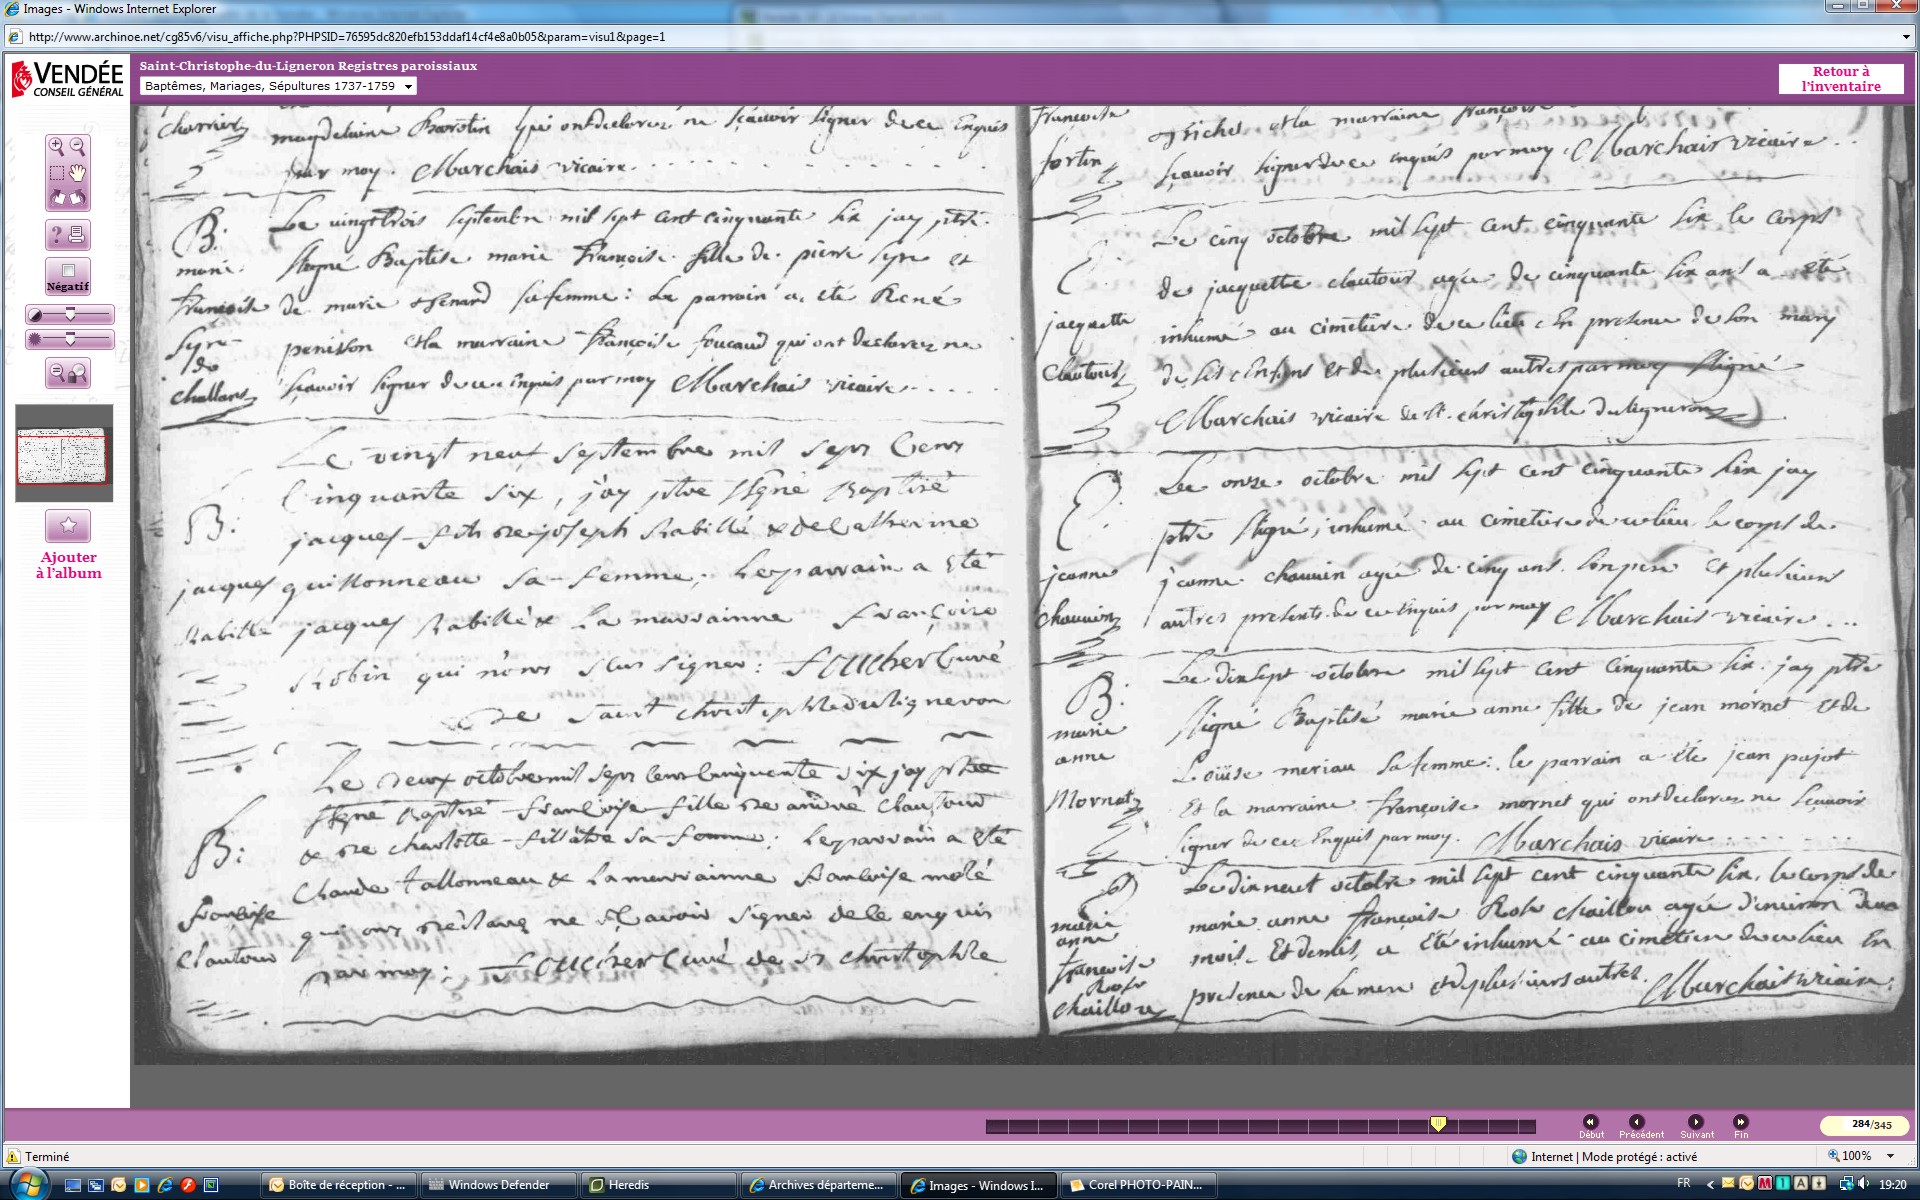 Images - Windows Internet Explorer
http://www.archinoe.net/cg85v6/visu_affiche.php?PHPSID=76595dc820efb153ddaf14cf4e8a0b05&param=visu1&page=1
VENDÉE
CONSEIL GÉNÉRAL
Saint-Christophe-du-Ligneron Registres paroissiaux
Baptêmes, Mariages, Sépultures 1737-1759
Retour à
l'inventaire
Négatif
Ajouter
à l'album
magdelaine qui ont declarez ne sçavoir signer de ce Enquis
par moy. Marchais vicaire
B:
marie
françoise
Syre
de
challans
Le vingt trois septembre mil sept cent cinquante six jay ptre
ssigné Baptisé marie françoise fille de pierre Syre et
de marie sa femme: Le parrain a eté René
penisson et la marraine françoise foucaud qui ont declarez ne
sçavoir signer de ce Enquis par moy Marchais vicaire
B:
jacques
Rabillé
Le vingt neuf septembre mil sept cens
cinquante six, j'ay ptre ssigné Baptisé
jacques fils de joseph Rabillé & de Catherine
guillonneau sa femme; le parrain a eté
jacques Rabillé & la marrainne françoise
Robin qui n'ont sçu signer: Foucher curé
de saint christophle du ligneron
B:
françoise
Clautour
Le deux octobre mil sept cens cinquante six jay ptre
ssigné Baptisé françoise fille de andré Clautour
& de charlotte sa femme: le parrain a eté
Claude tallonneau & la marrainne françoise molé
qui ont declaré ne sçavoir signer de ce enquis
par moy: Foucher curé de st christophle
françoise
fortin
et la marraine françoise
sçavoir signer de ce enquis par moy Marchais vicaire
jacquette
Clautour
Le cinq octobre mil sept cent cinquante six le corps
de jacquette clautour agée de cinquante six ans a eté
inhumé au cimetiere de ce lieu En presence de son mary
de ses Enfans et de plusieurs autres par moy ssigné
Marchais vicaire de st. christophle du ligneron
jeanne
chauvin
Le onze octobre mil sept cent cinquante six jay
ptre ssigné, inhumé au cimetiere de ce lieu le corps de
jeanne chauvin agée de cinq ans. son pere et plusieurs
autres presents de ce Enquis par moy Marchais vicaire
B:
marie
anne
Mornet
Le dix sept octobre mil sept cent cinquante six. jay ptre
ssigné Baptisé marie anne fille de jean mornet et de
Loüise meriau sa femme: le parrain a été jean pajot
Et la marraine françoise mornet qui ont declarez ne sçavoir
signer de ce Enquis par moy. Marchais vicaire
marie
anne
françoise
Rose
chaillou
Le dix neuf octobre mil sept cent cinquante six, le corps de
marie anne françoise Rose chaillou agée d'environ deux
mois Et demis, a Eté inhumé au cimetiere de ce lieu En
presence de sa mere et de plusieurs autres. Marchais vicaire
Début
Précédent
Suivant
Fin
284/345
Terminé
Internet | Mode protégé : activé
100%
Boîte de réception - ...
Windows Defender
Heredis
Archives départeme...
Images - Windows I...
Corel PHOTO-PAIN...
FR
19:20